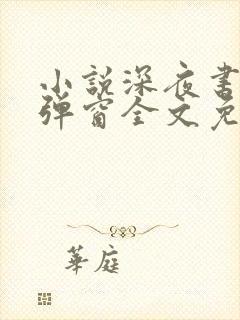 小説深夜書
彈窗全文免
華庭